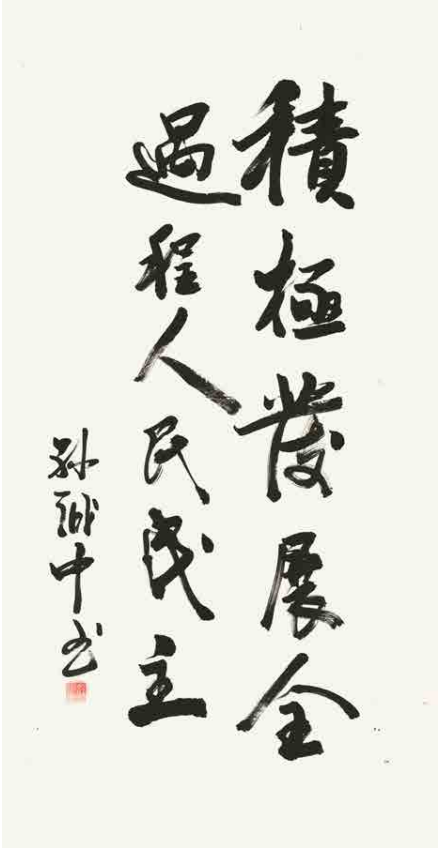 積極發展全
過程人民民主
孙誠中书